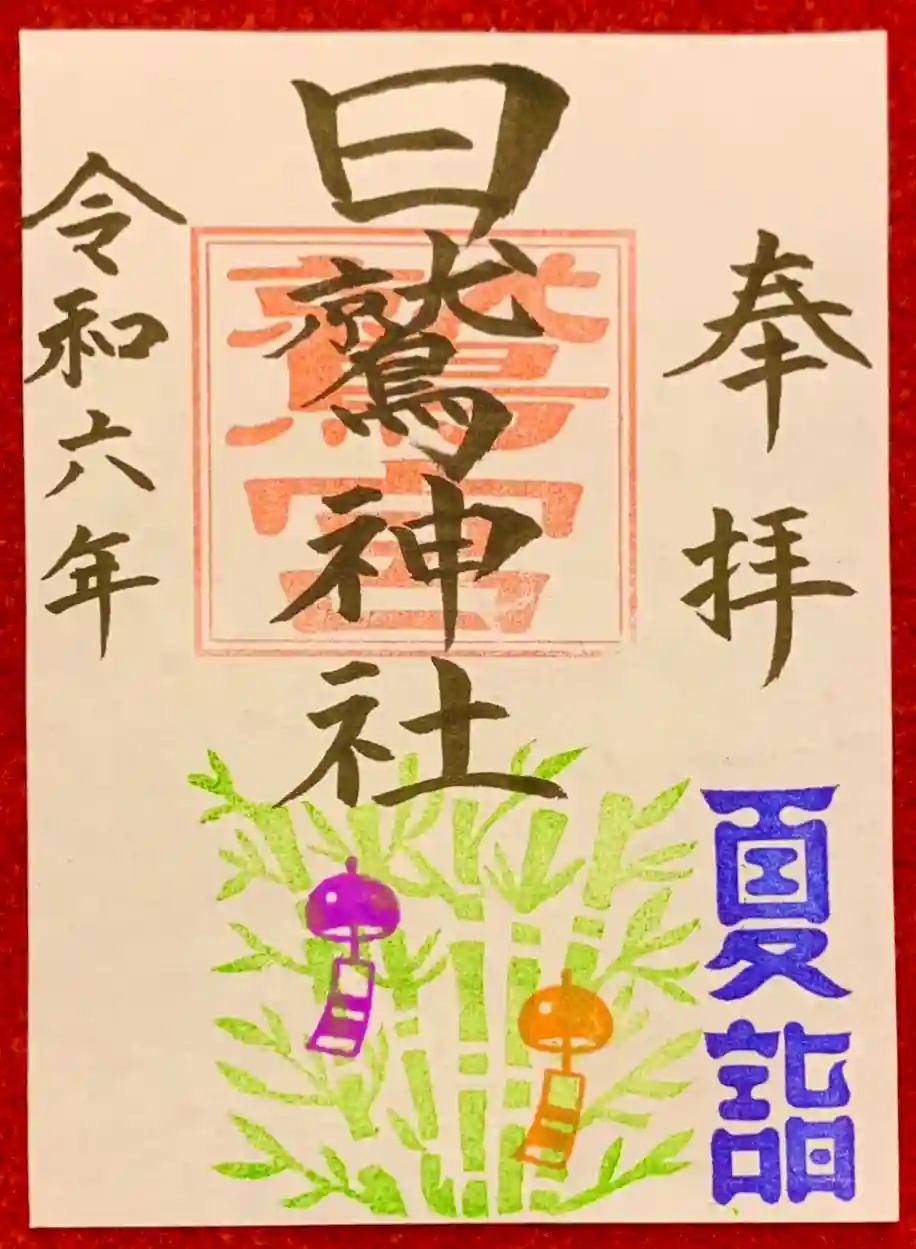 奉拝
夏詣
日鷲神社
鷲宮
令和六年